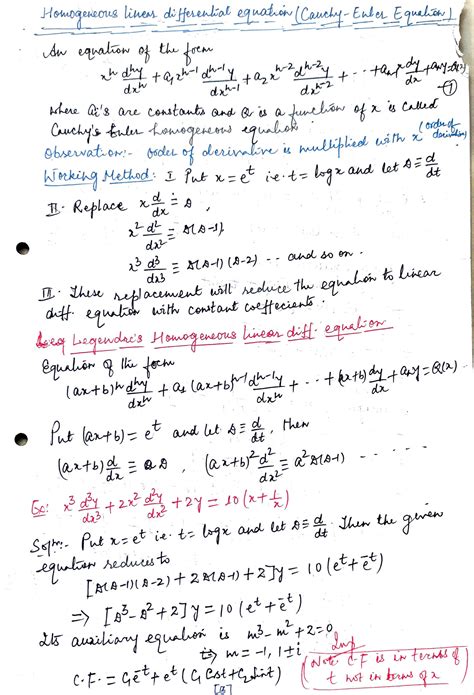 Homogeneous linear differential equation (Cauchy-Euler Equation)
An equation of the form
xⁿ dⁿy/dxⁿ + a₁xⁿ⁻¹ dⁿ⁻¹y/dxⁿ⁻¹ + a₂xⁿ⁻² dⁿ⁻²y/dxⁿ⁻² + ··· + aₙ₋₁x dy/dx + aₙy = Q(x) —①
where aᵢ's are constants and Q is a function of x is called
Cauchy's Euler homogeneous equation.
Observation:- order of derivative is multiplied with x (order of derivative)
Working Method: I Put x = eᵗ i.e. t = logx and let D ≡ d/dt
II. Replace x d/dx ≡ D ,
x² d²/dx² ≡ D(D-1)
x³ d³/dx³ ≡ D(D-1)(D-2) -- and so on.
III. These replacement will reduce the equation to linear
diff. equation with constant coeffecients.
Legendre's Homogeneous linear diff. equation
Equation of the form
(ax+b)ⁿ dⁿy/dxⁿ + a₁(ax+b)ⁿ⁻¹ dⁿ⁻¹y/dxⁿ⁻¹ + ··· + (ax+b) dy/dx + aₙy = Q(x)
Put (ax+b) = eᵗ and let D ≡ d/dt, then
(ax+b) d/dx ≡ aD , (ax+b)² d²/dx² ≡ a²D(D-1) -----
Ex: x³ d³y/dx³ + 2x² d²y/dx² + 2y = 10(x + 1/x)
Solⁿ:- Put x = eᵗ i.e. t = logx and let D ≡ d/dt. Then the given
equation reduces to
[D(D-1)(D-2) + 2D(D-1) + 2]y = 10(eᵗ + e⁻ᵗ)
⇒ [D³ - D² + 2]y = 10(eᵗ + e⁻ᵗ)
Its auxiliary equation is m³ - m² + 2 = 0
⇒ m = -1, 1±i
C.F. = C₁e⁻ᵗ + eᵗ(C₁ Cost + C₂ Sint)
Imp
(Note C.F is in terms of
t not in terms of x)
[3]